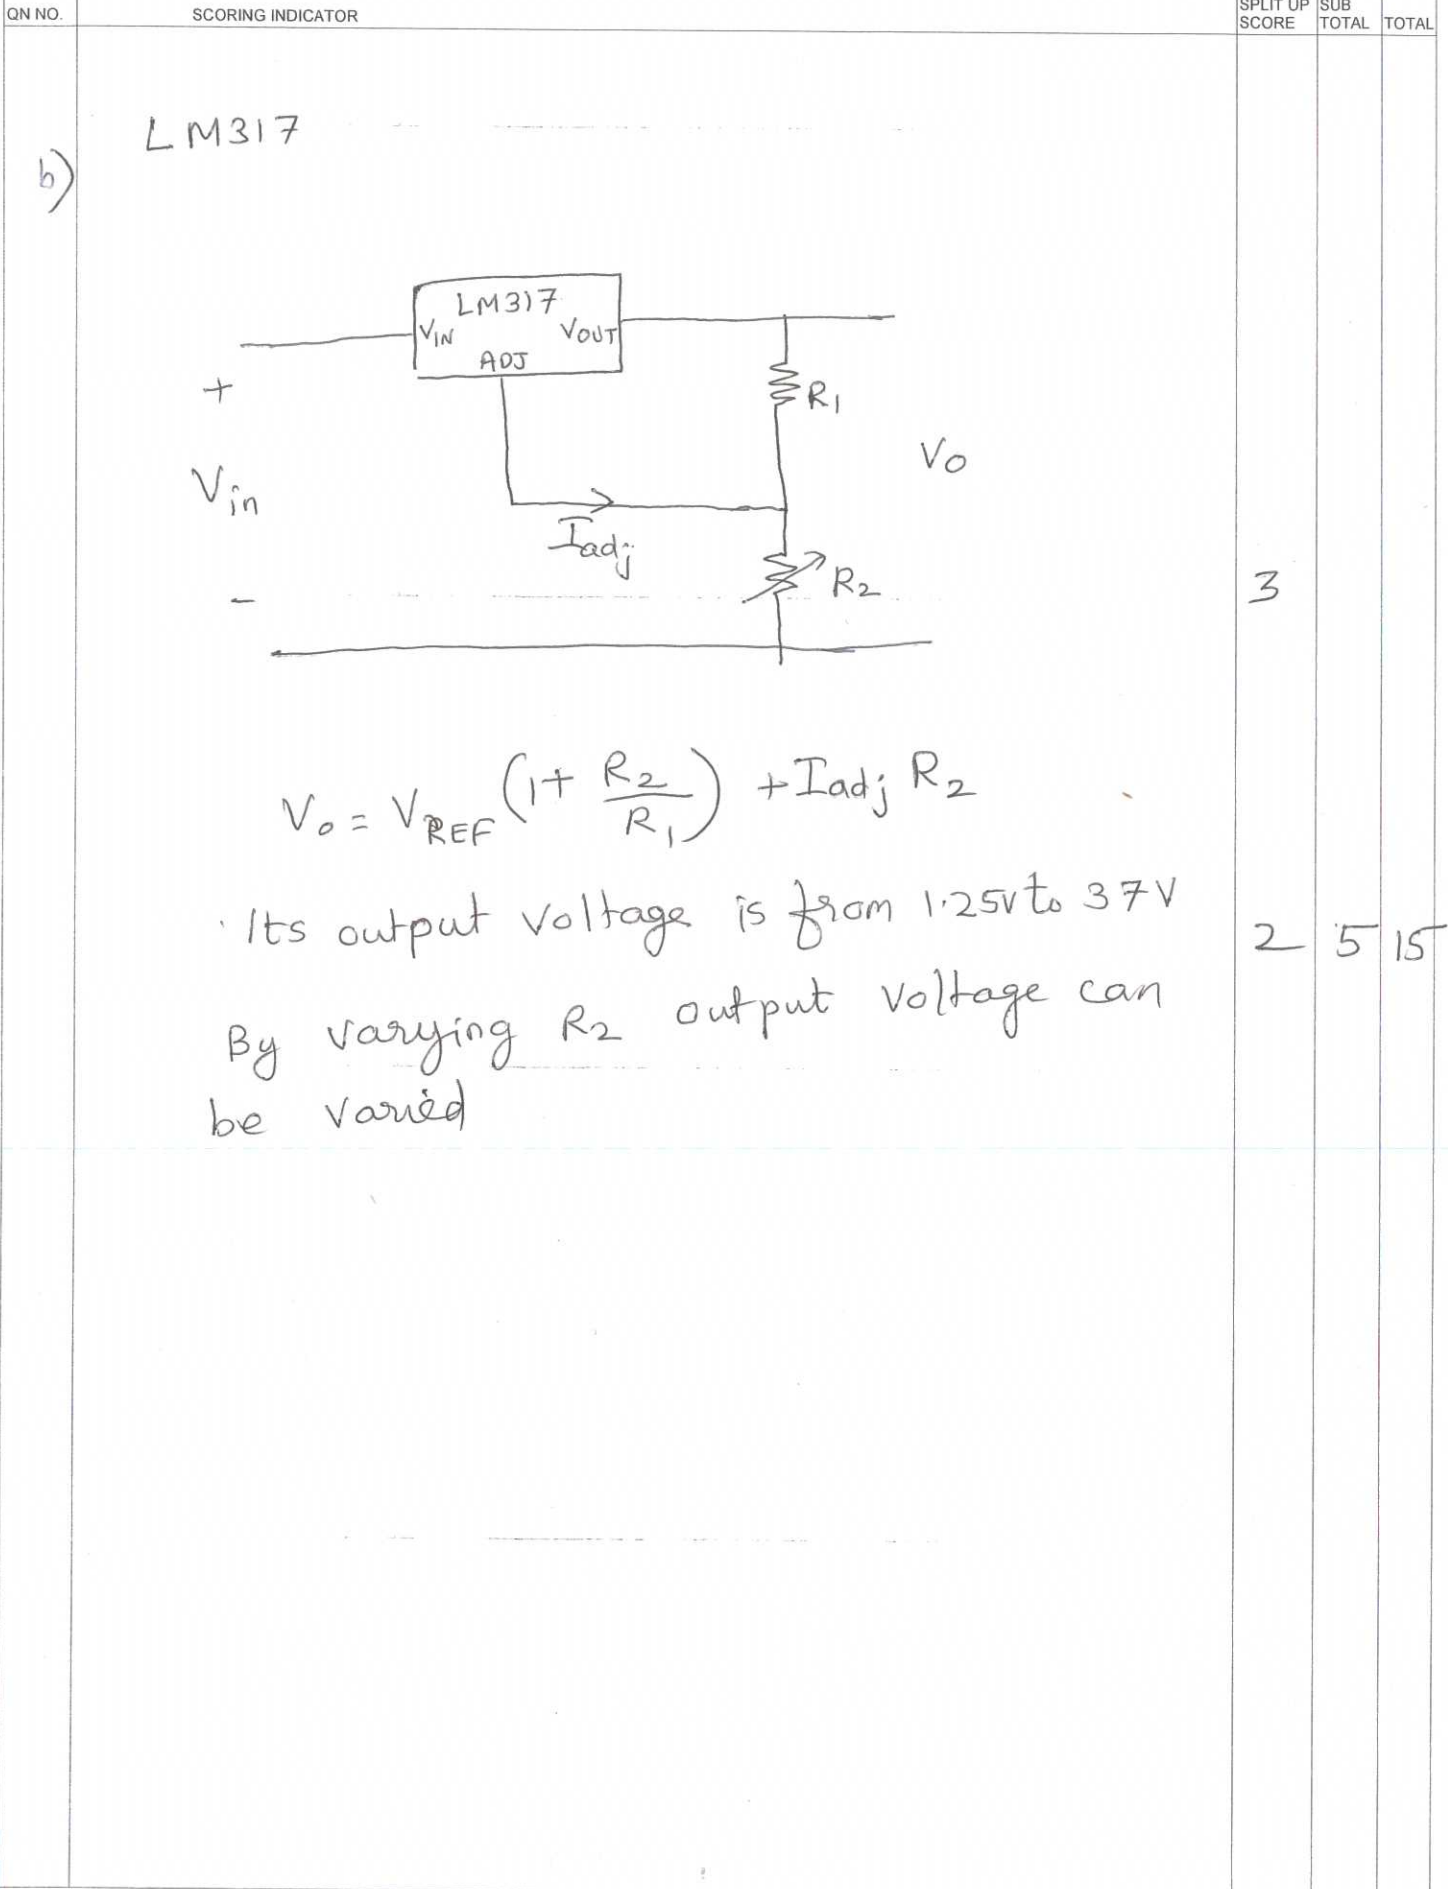 QN NO. SCORING INDICATOR SPLIT UP SCORE SUB TOTAL TOTAL
LM317
b)
LM317
VIN VOUT
ADJ
+
R1
Vo
Vin
Iadj
R2
-
3
Vo = VREF (1+ R2/R1) + Iadj R2
Its output voltage is from 1.25v to 37V
2 5 15
By varying R2 output voltage can
be varied